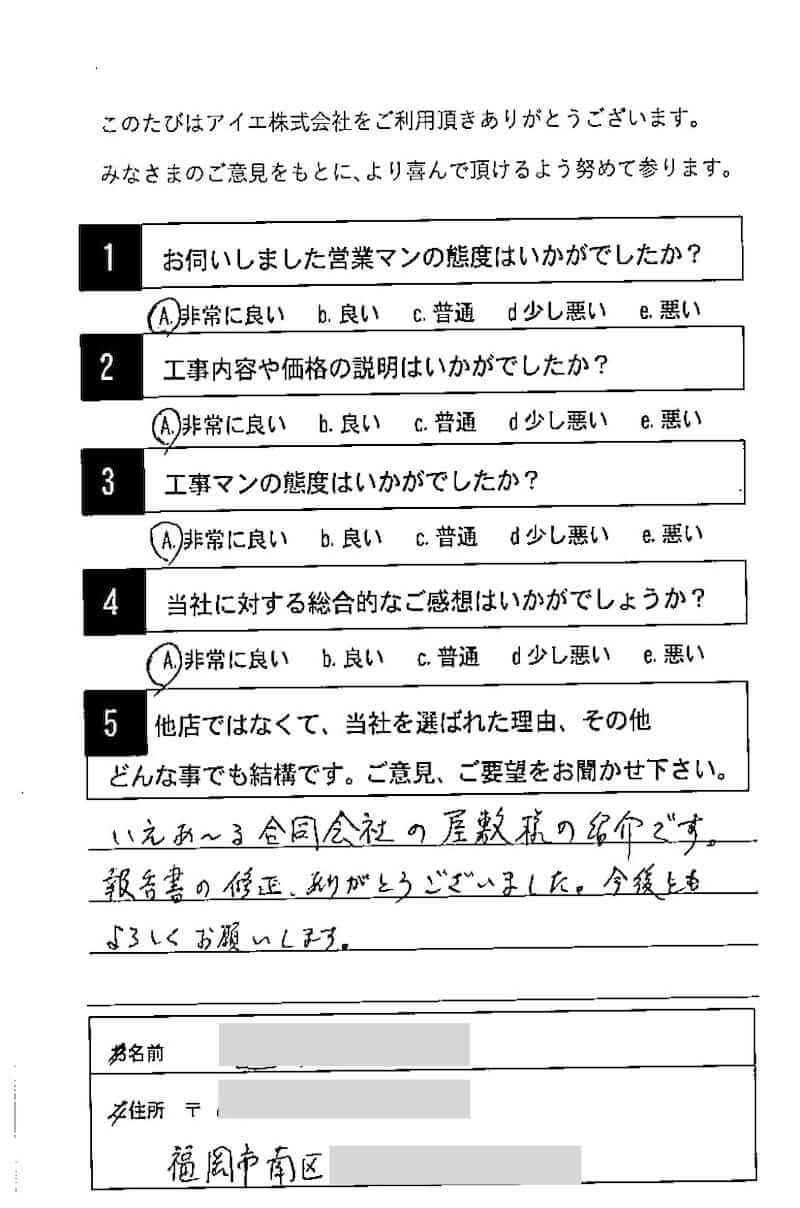 このたびはアイエ株式会社をご利用頂きありがとうございます。
みなさまのご意見をもとに、より喜んで頂けるよう努めて参ります。
1 お伺いしました営業マンの態度はいかがでしたか？
A.非常に良い b. 良い c. 普通 d 少し悪い e. 悪い
2 工事内容や価格の説明はいかがでしたか？
A.非常に良い b. 良い c. 普通 d 少し悪い e. 悪い
3 工事マンの態度はいかがでしたか？
A.非常に良い b. 良い c. 普通 d 少し悪い e. 悪い
4 当社に対する総合的なご感想はいかがでしょうか？
A.非常に良い b. 良い c. 普通 d 少し悪い e. 悪い
5 他店ではなくて、当社を選ばれた理由、その他
どんな事でも結構です。ご意見、ご要望をお聞かせ下さい。
いえあ〜る合同会社の屋敷様の紹介です。
報告書の修正、ありがとうございました。今後とも
よろしくお願いします。
お名前
ご住所 〒
福岡市南区